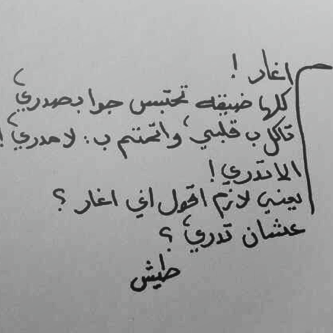 اغار !
كلها ضيقه تحتبس جوا بصدري
تاكل ب قلبي، واتمتم ب : لا مدري !
الا تدري !
يعني لازم اقول اني اغار ؟
عشان تدري ؟
طيش